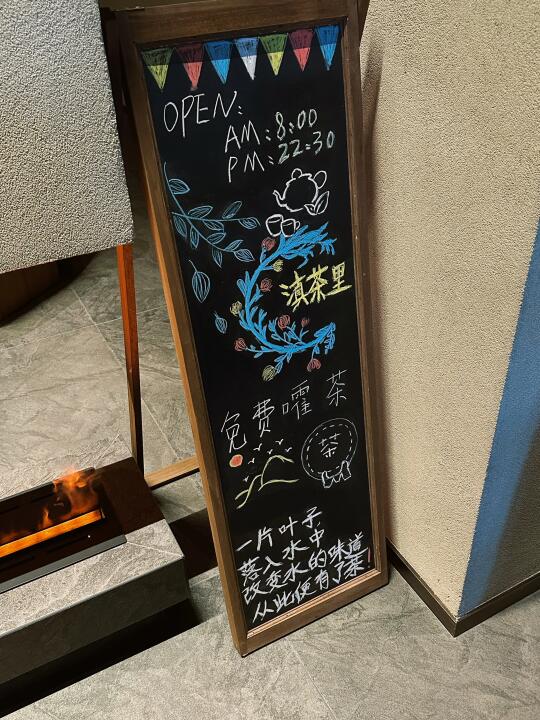 OPEN:
AM:8:00
PM:22:30
滇茶里
免费嚯茶
茶
一片叶子
落入水中
改变水的味道
从此便有了茶